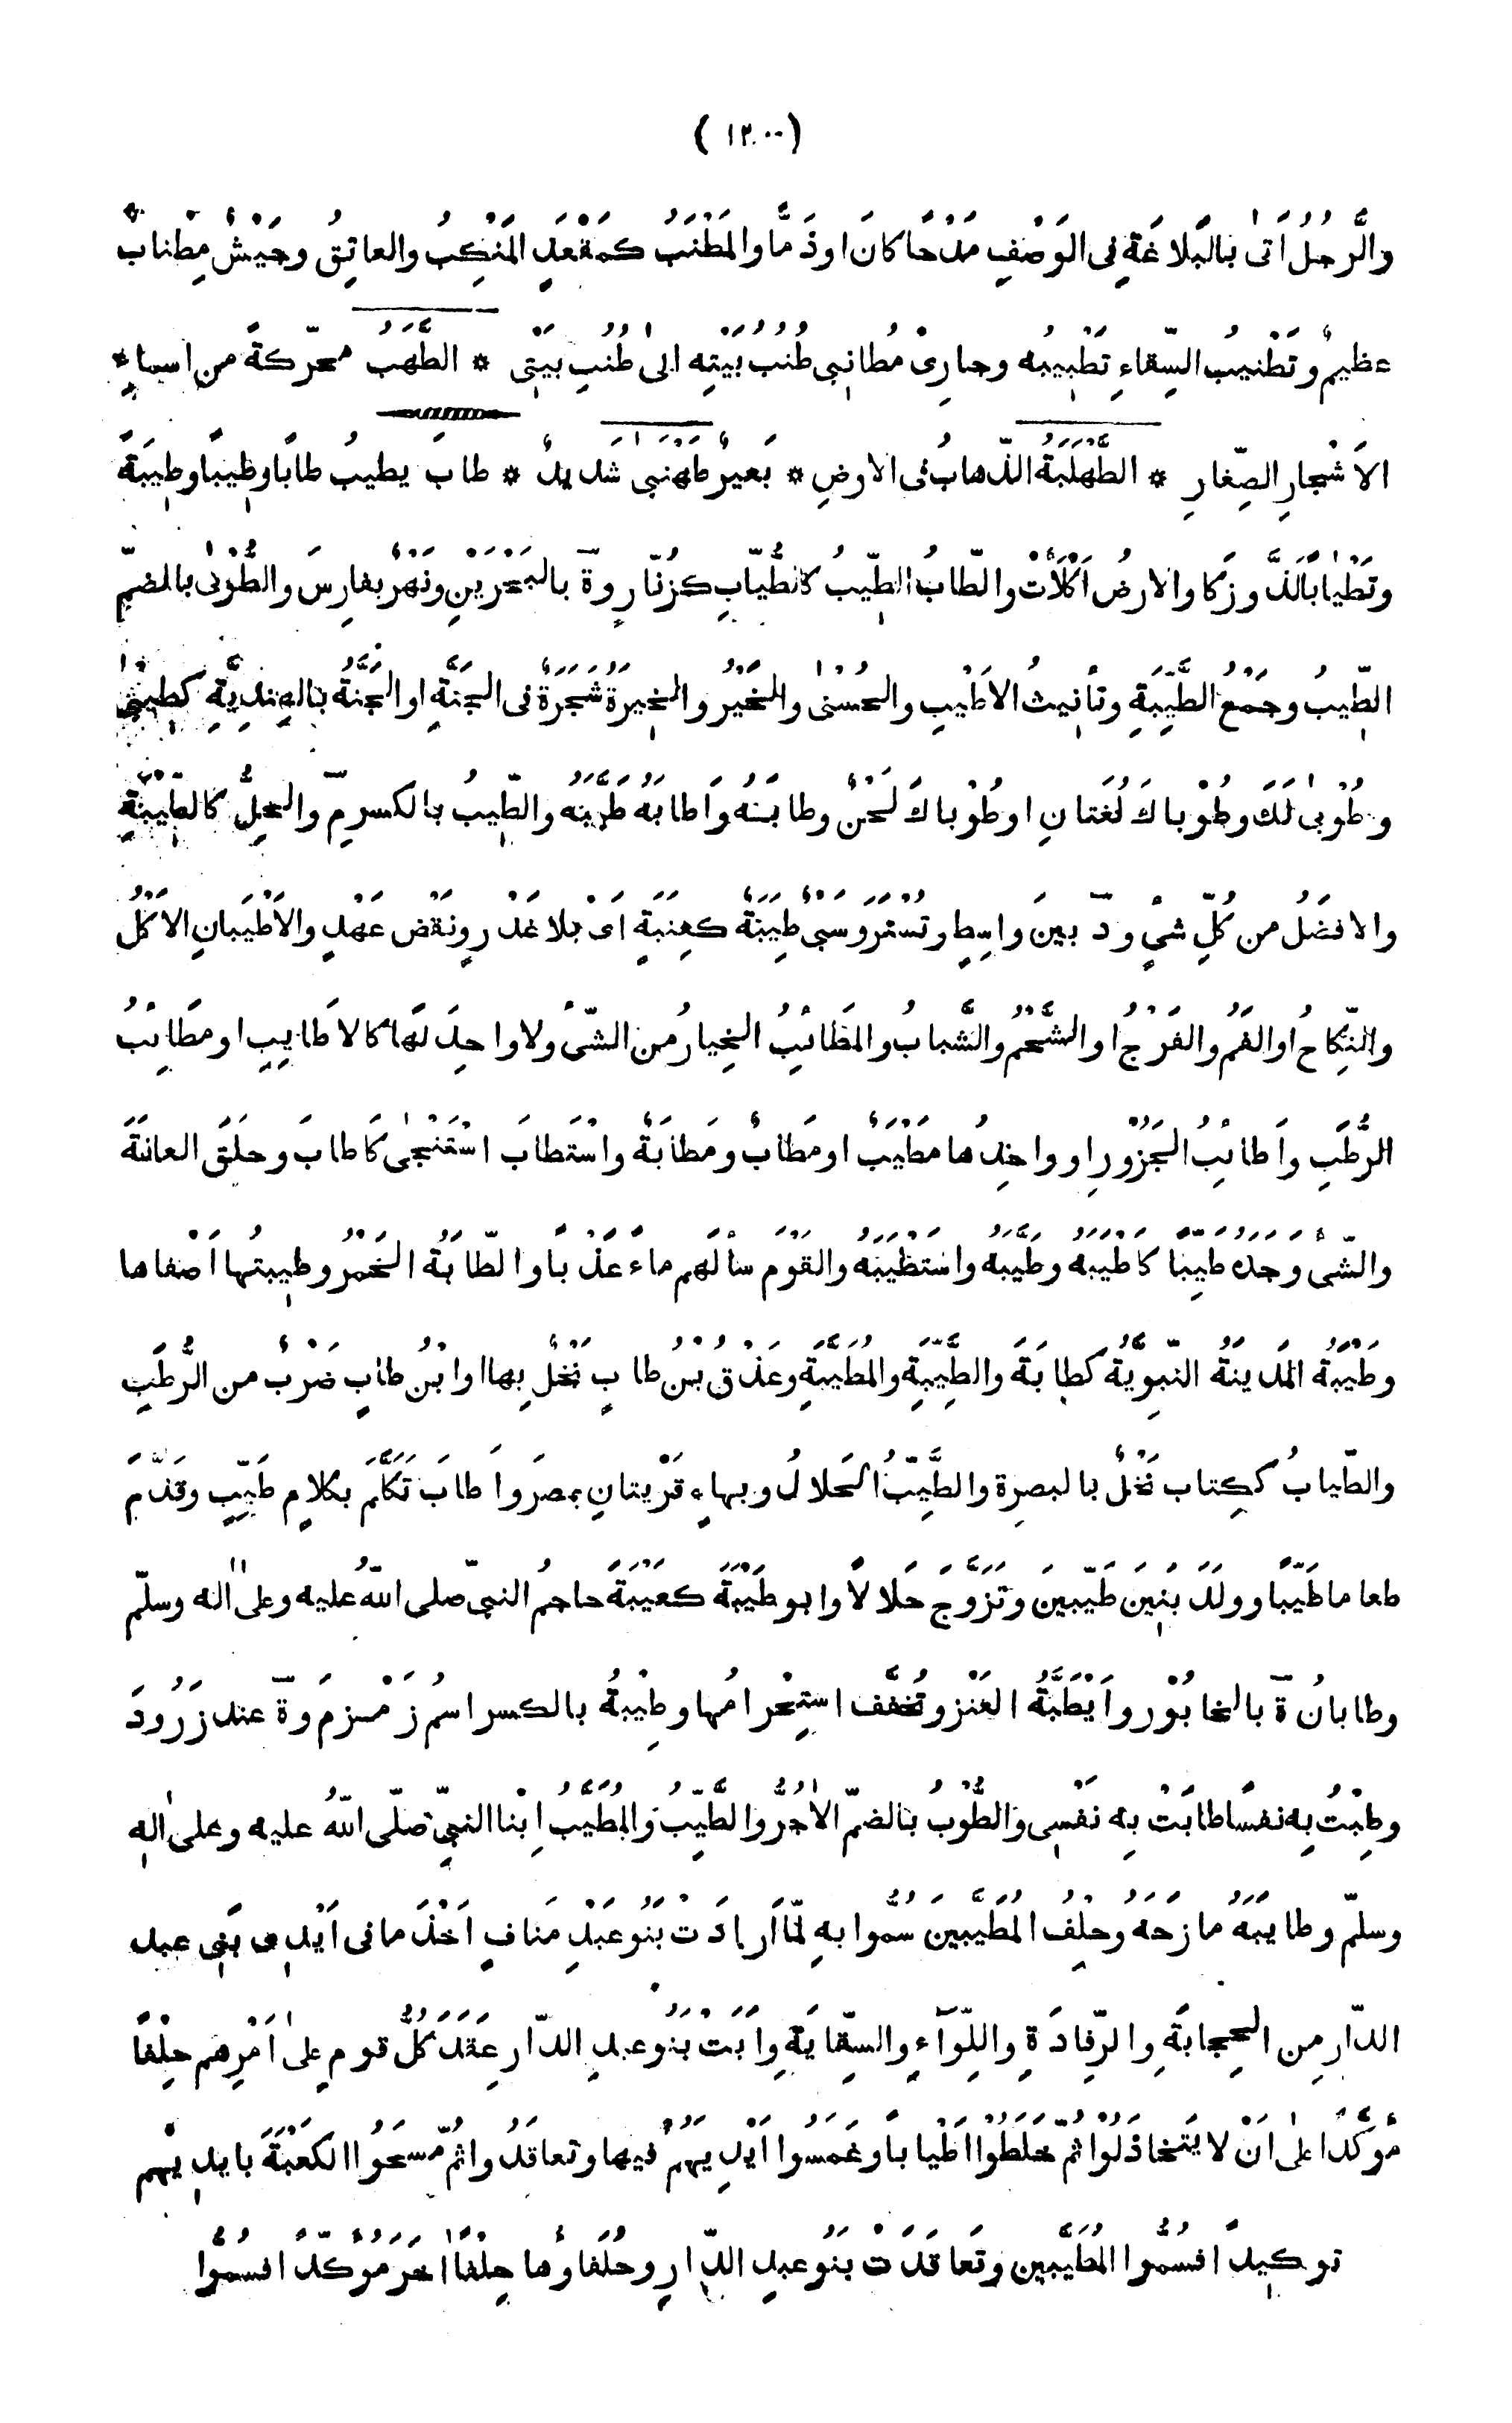 (١٢٠٠)
والرَّجُلُ اَتىٰ بالبَلاغَةِ فى الوَصْفِ مَدْحًا كانَ اوذَمًّا والمَطْنَبُ كمَقْعَدٍ المَنْكِبُ والعاتِقُ وجَيْشٌ مِطْنابٌ
عظيمٌ وتَطْنيبُ السِّقاءِ تَطْبيبُه وجارِىْ مُطانِبى طُنُبُ بَيْتِه الىٰ طُنُبِ بَيْتى * الطَّهَبُ محرّكةً من اسماءِ
الاَشْجارِ الصِّغارِ * الطَّهْلَبَةُ الذّهابُ فى الارضِ * بَعيرٌ طَهَنْبىٰ شَديدٌ * طابَ يطيبُ طابًا وطِيبًا وطِيبَةً
وتَطْيابًا لَذَّ وزَكا والارضُ اَكْلَأَتْ والطّابُ الطّيبُ كالطُّيّابِ كزُنّارٍ وة بالبَحْرَيْنِ ونَهْرٌ بفارِسَ والطُّوْبىٰ بالضمِّ
الطّيبُ وجَمْعُ الطَّيِّبَةِ وتأنيثُ الاَطْيَبِ والحُسْنىٰ والخَيْرُ والخِيَرَةُ شَجَرَةٌ فى الجَنَّةِ او الجَنَّةُ بالهِنْديَّةِ كطِيبىٰ
وطُوْبىٰ لَكَ وطُوْباكَ لُغَتانِ اوطُوْباكَ لَحْنٌ وطابَهُ واَطابَهُ طَيَّبَهُ والطّيبُ بالكسرِ م والحِلُّ كالطّيبَةِ
والافضَلُ من كُلِّ شىْءٍ ود بينَ واسِطٍ وتُسْتَرَ وسَبْىٌ طِيَبَةٌ كعِنَبَةٍ اَىْ بلا غَدْرٍ ونَقْضِ عَهْدٍ والاَطْيَبانِ الاَكْلُ
والنِّكاحُ اوالفَمُ والفَرْجُ او الشَّحْمُ والشَّبابُ والمَطائِبُ الخِيارُ من الشّىْءِ ولا واحِدَ لَها كالاَطايِبِ اومَطائِبُ
الرُّطَبِ واَطائِبُ الجَزُورِ او واحِدُها مَطْيَبٌ اومَطابٌ ومَطابَةٌ واسْتَطابَ اسْتَنْجىٰ كاَطابَ وحَلَقَ العانَةَ
والشّىْءَ وجَدَه طيِّبًا كاَطْيَبَه وطَيَّبَه واسْتَطْيَبَه والقَوْمَ سأَلَهم ماءً عَذْبًا والطّابَةُ الخَمْرُ وطِيبتُها اَصْفاها
وطَيْبَةُ المَدينَةُ النّبَوِيَّةُ كطابَةَ والطَّيِّبَةِ والمُطَيَّبَةِ وعَذْقُ بْنُ طابٍ نَخْلٌ بِها او ابْنُ طابٍ ضَرْبٌ من الرُّطَبِ
والطّيابُ ككِتابٍ نَخْلٌ بالبصرةِ والطَّيِّبُ الحَلالُ وبهاءٍ قريتانِ بمصرَ واَطابَ تَكَلَّمَ بكلامٍ طَيِّبٍ وقَدَّمَ
طعاما طَيِّبًا ووَلَدَ بَنينَ طَيِّبينَ وتَزَوَّجَ حَلالًا وابو طَيْبَةَ كعَيْبَةَ حاجِمُ النبىّ صلى اللّهُ عليه وعلىٰ اٰله وسلّم
وطابانُ ة بالخابُوْر واَيْطَبَّةُ العَنْزِ وتُخَفَّف استِحْرامُها وطِيْبةُ بالكسر اسمُ زَمْزمَ وة عند زَرُودَ
وطِبْتُ بِه نفسًا طابَتْ بِه نَفْسى والطُّوبُ بالضمّ الاٰجُرُّ والطَّيِّبُ والمُطَيَّبُ اِبْنا النبىّ صلّى اللّهُ عليه وعلىٰ اٰلِه
وسلّم وطايَبَهُ مازَحَهُ وحِلْفُ المُطَيَّبينَ سُمُّوا بهِ لَمّا اَرادَتْ بَنُو عَبْدِ مَنافٍ اَخْذَ مافى اَيْدِى بَنِى عبد
الدّار مِن الحِجابَةِ والرِّفادَةِ واللِّوآءِ والسِّقايَةِ واَبَتْ بَنُو عبدِ الدّارِ عَقَدَ كُلُّ قومٍ علىٰ اَمْرِهم حِلْفًا
مُؤَكَّدًا علىٰ اَنْ لا يَتَخاذَلُوا ثمّ خَلَطُوا اَطْيابًا وغَمَسُوا اَيْدِيَهُمْ فيها وتعاقَدُوا ثُمّ مَسَحُوا الكَعْبَةَ بايدِيْهِم
توكيدًا فسُمُّوا المُطَيَّبين وتَعاقَدَتْ بَنُو عبدِ الدّارِ وحُلَفاؤُها حِلْفًا اٰخَرَ مُوَكَّدًا فسُمُّوا